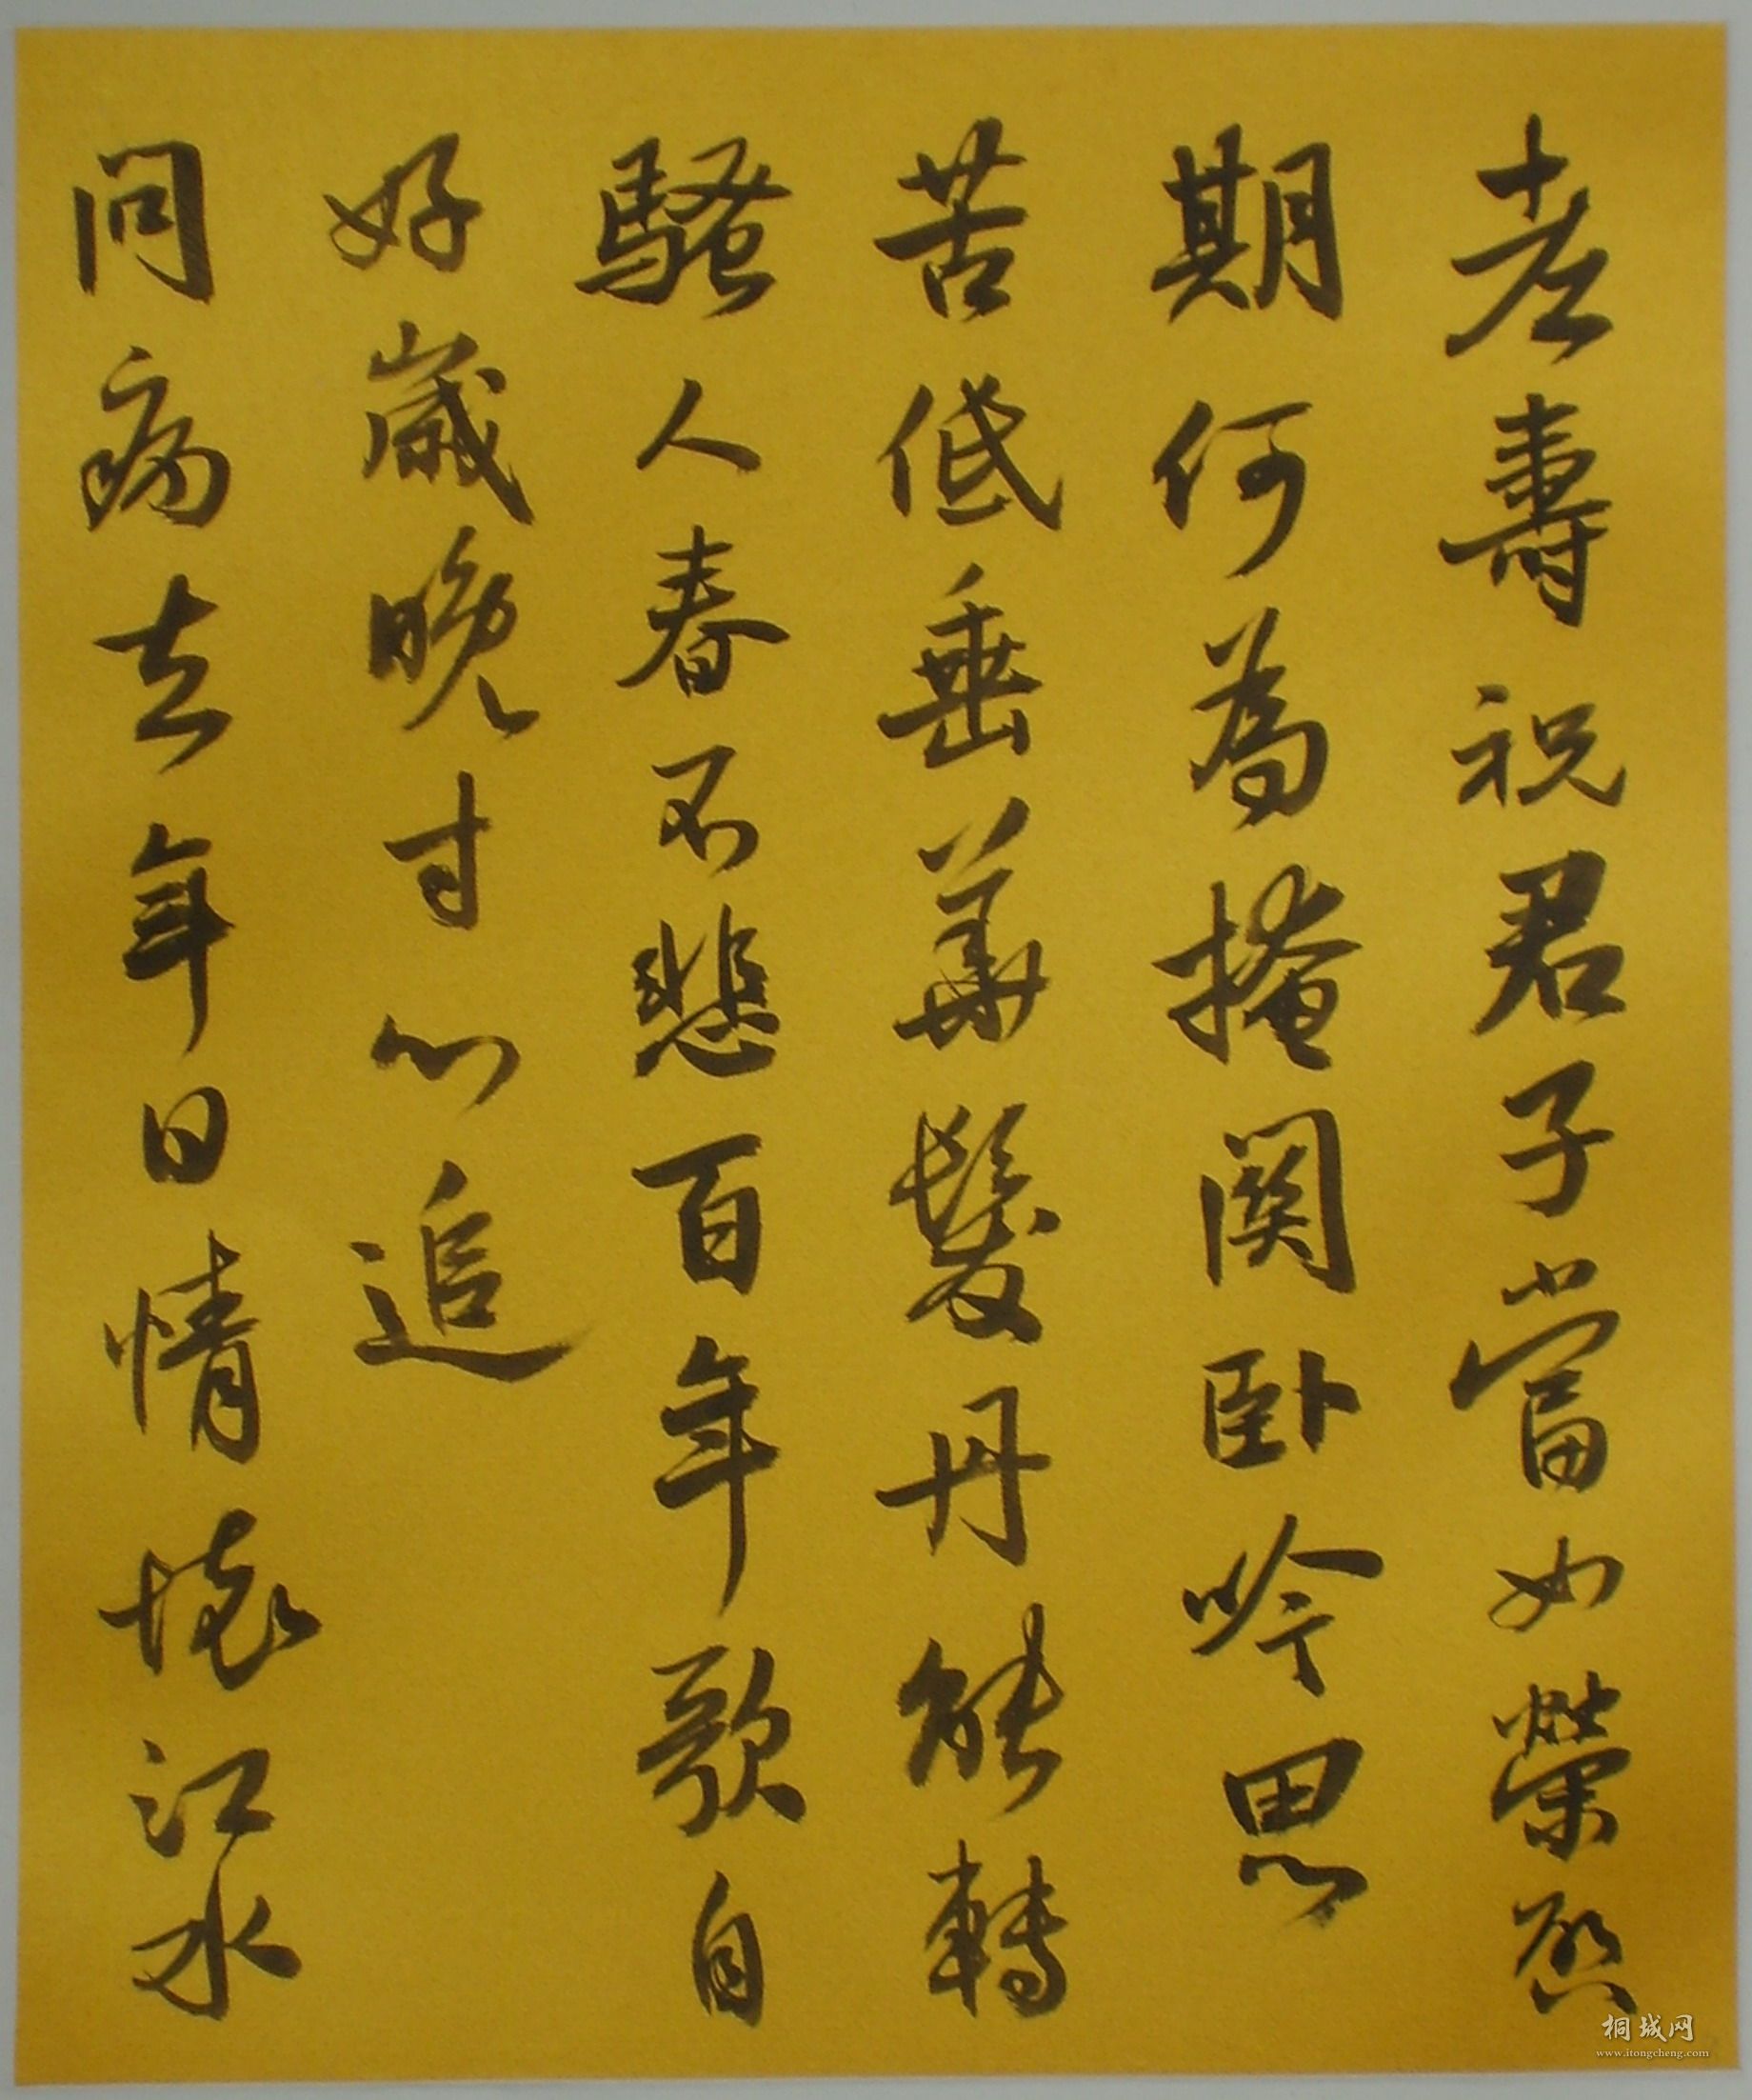 老壽祝君子當如榮啓
期何為掩關卧吟思
苦低垂華髮丹能轉
騷人春不悲百年歌自
好歲晚寸心追
問病去年日情懷江水
桐城网
www.itongcheng.com